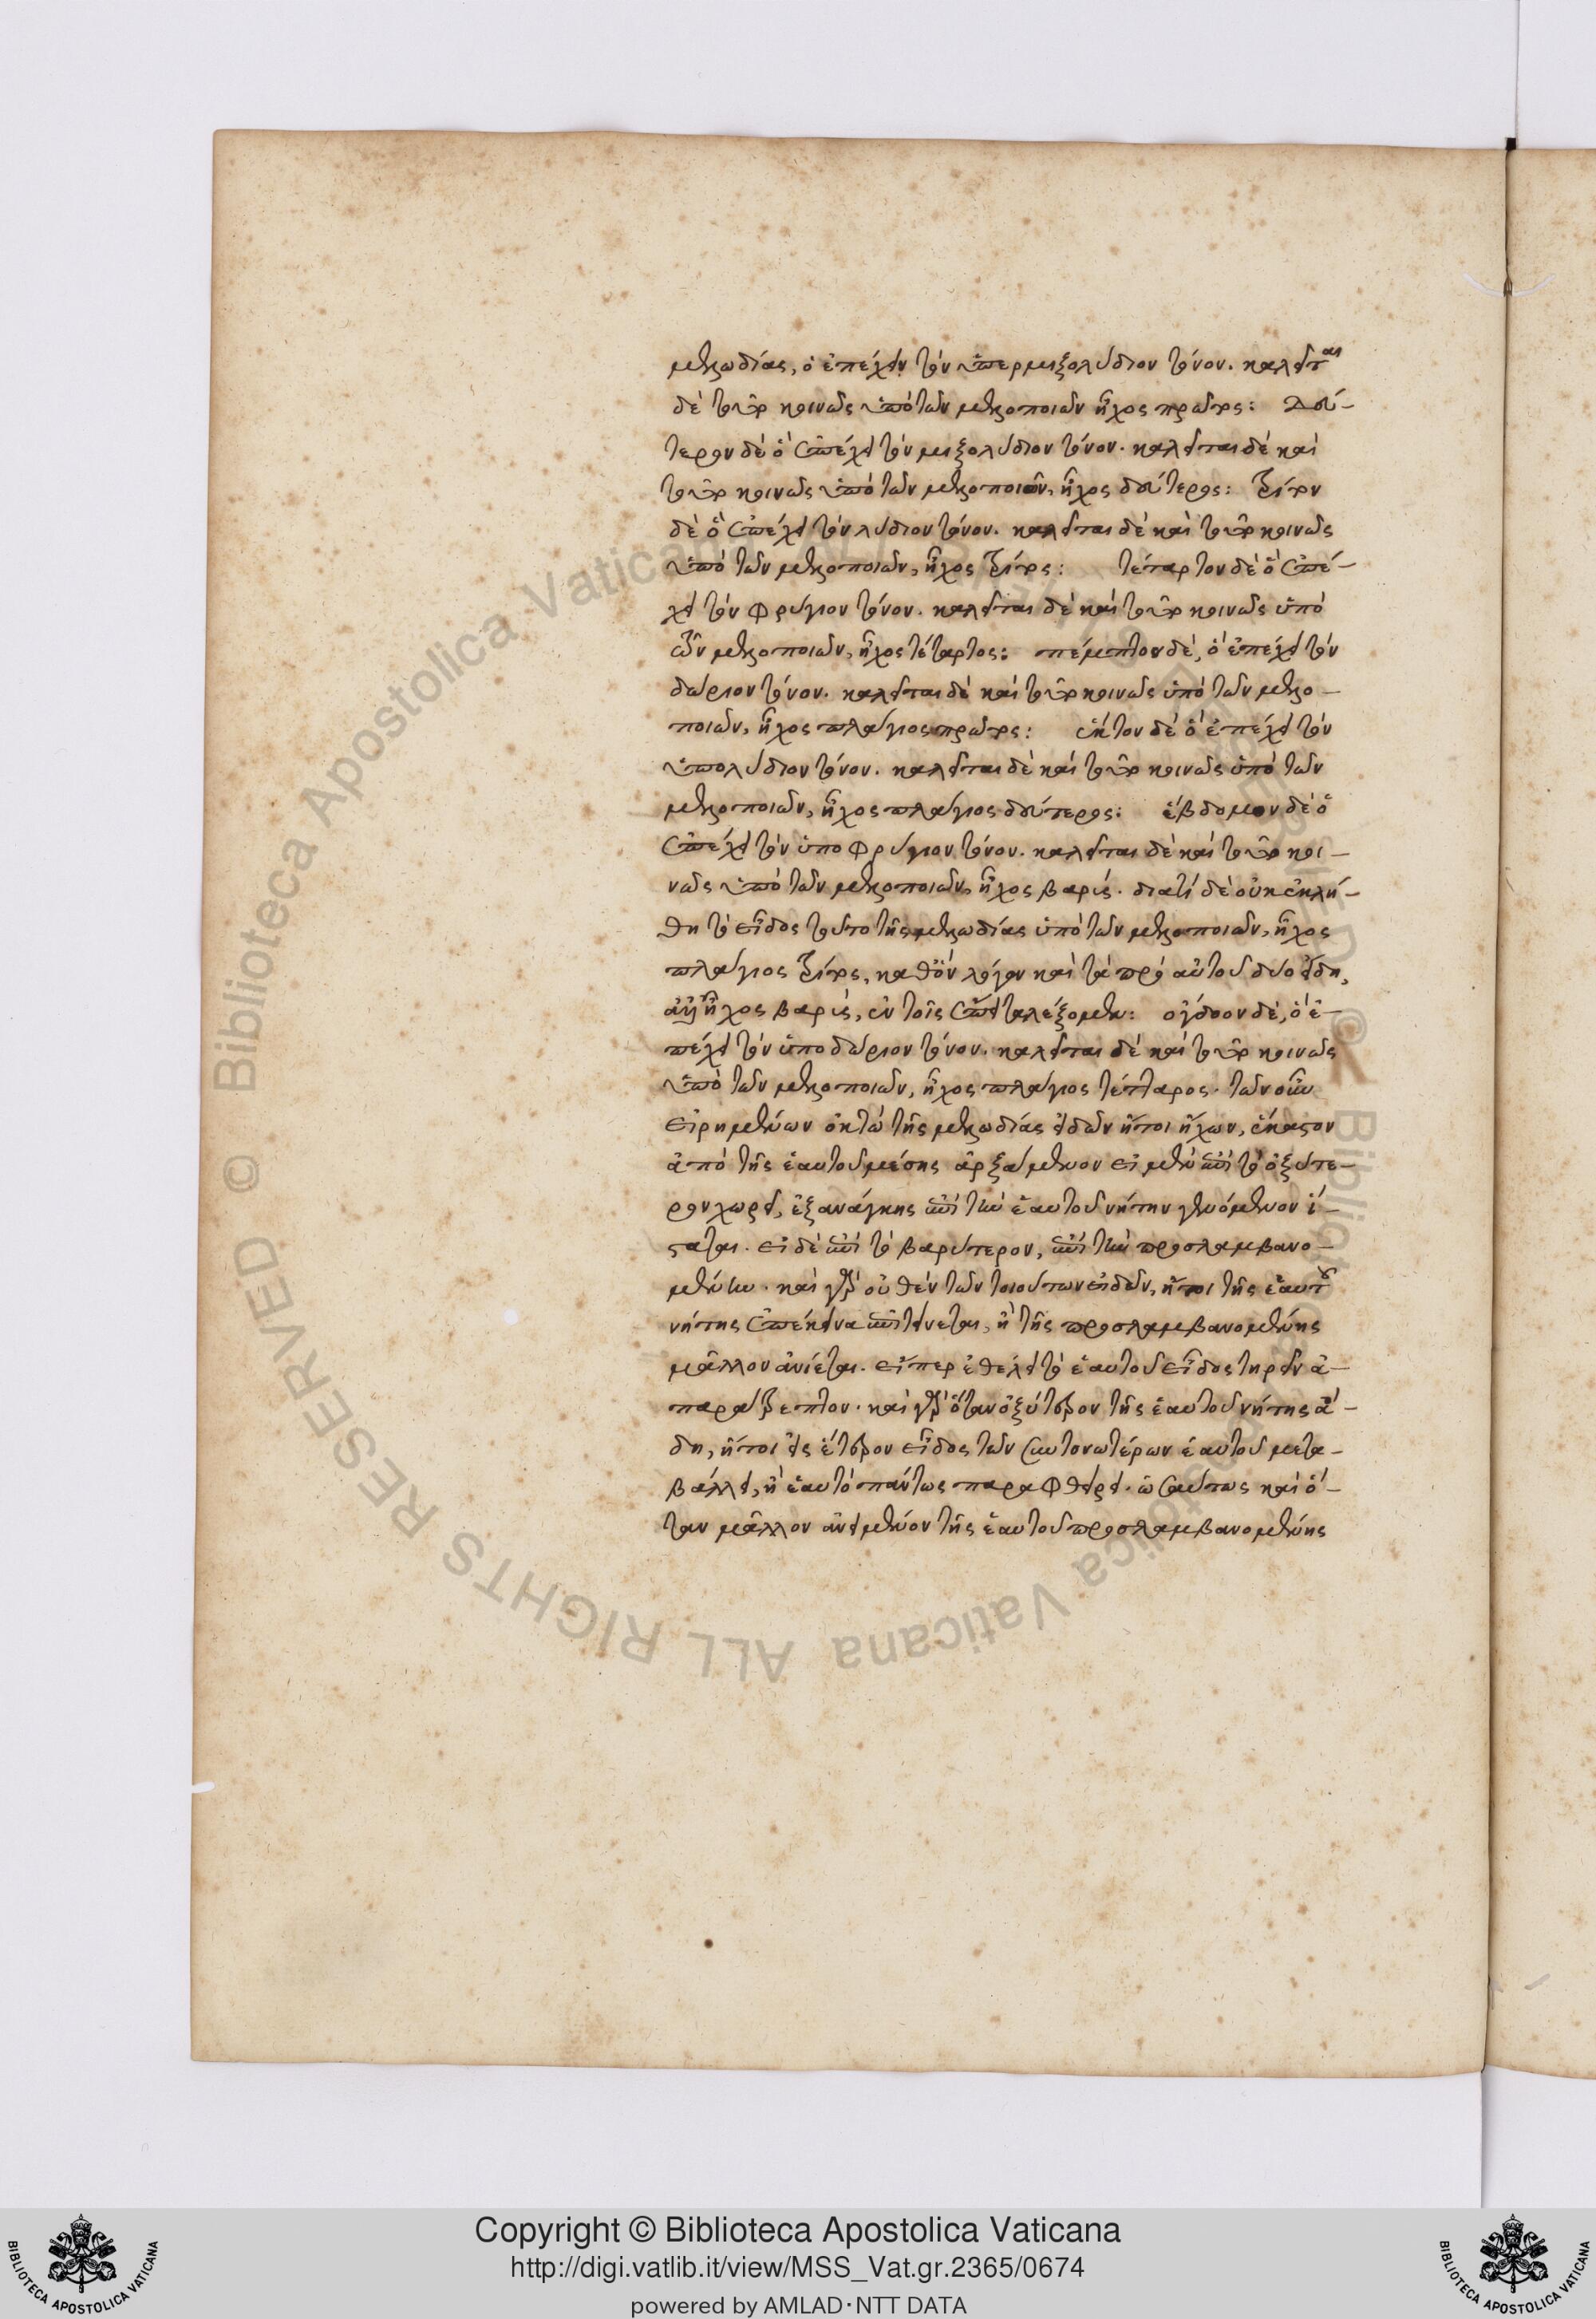 μελῳδίας, ὁ ἐπέχειν τὸν ὑπερμιξολύδιον τόνον. καλεῖται
δὲ τοῦτο κοινῶς ὑπὸ τῶν μελοποιῶν ἦχος πρῶτος: Δεύ-
τερον δὲ ὃ ἐπέχει τὸν μιξολύδιον τόνον. καλεῖται δὲ καὶ
τοῦτο κοινῶς ὑπὸ τῶν μελοποιῶν, ἦχος δεύτερος: τρίτον
δὲ ὃ ἐπέχει τὸν λύδιον τόνον. καλεῖται δὲ καὶ τοῦτο κοινῶς
ὑπὸ τῶν μελοποιῶν, ἦχος τρίτος: τέταρτον δὲ ὃ ἐπέ-
χει τὸν φρύγιον τόνον. καλεῖται δὲ καὶ τοῦτο κοινῶς ὑπὸ
τῶν μελοποιῶν, ἦχος τέταρτος: πέμπτον δὲ, ὃ ἐπέχει τὸν
δώριον τόνον. καλεῖται δὲ καὶ τοῦτο κοινῶς ὑπὸ τῶν μελο-
ποιῶν, ἦχος πλάγιος πρῶτος: ἕκτον δὲ ὃ ἐπέχει τὸν
ὑπολύδιον τόνον. καλεῖται δὲ καὶ τοῦτο κοινῶς ὑπὸ τῶν
μελοποιῶν, ἦχος πλάγιος δεύτερος: ἕβδομον δὲ ὃ
ἐπέχει τὸν ὑποφρύγιον τόνον. καλεῖται δὲ καὶ τοῦτο κοι-
νῶς ὑπὸ τῶν μελοποιῶν, ἦχος βαρύς. διατί δὲ οὐκ ἐκλή-
θη τὸ εἶδος τοῦτο τῆς μελῳδίας ὑπὸ τῶν μελοποιῶν, ἦχος
πλάγιος τρίτος, καθ' ὃν λόγον καὶ τὰ πρὸ αὐτοῦ δύο εἴδη,
ἀλλ' ἦχος βαρύς, ἐν τοῖς ἔπειτα λέξομεν: ὄγδοον δὲ, ὃ ἐ-
πέχει τὸν ὑποδώριον τόνον. καλεῖται δὲ καὶ τοῦτο κοινῶς
ὑπὸ τῶν μελοποιῶν, ἦχος πλάγιος τέταρτος. τῶν οὖν
εἰρημένων ὀκτὼ τῆς μελῳδίας εἰδῶν ἤτοι ἤχων, ἕκαστον
ἀπὸ τῆς ἑαυτοῦ μέσης ἀρξάμενον εἰ μὲν ἐπὶ τὸ ὀξύτε-
ρον χωρεῖ, ἐξανάγκης ἐπὶ τὴν ἑαυτοῦ νήτην γενόμενον ἵ-
σταται. εἰ δὲ ἐπὶ τὸ βαρύτερον, ἐπὶ τὴν προσλαμβανο-
μένην. καὶ γὰρ οὐθὲν τῶν τοιούτων εἰδῶν, ἤτοι τῆς ἑαυτοῦ
νήτης ἐπέκεινα ἐπιτείνεται, ἢ τῆς προσλαμβανομένης
μᾶλλον ἀνίεται. εἴπερ ἐθέλει τὸ ἑαυτοῦ εἶδος τηρεῖν ἀ-
παράτρεπτον. καὶ γὰρ ὅταν ὀξύτερον τῆς ἑαυτοῦ νήτης ᾄ-
δη, ἤτοι εἰς ἕτερον εἶδος τῶν συντονωτέρων ἑαυτοῦ μετα-
βάλλει, ἢ ἑαυτὸ πάντως παραφθείρει. ὡσαύτως καὶ ὅ-
ταν μᾶλλον ἀνειμένον τῆς ἑαυτοῦ προσλαμβανομένης
Copyright © Biblioteca Apostolica Vaticana
http://digi.vatlib.it/view/MSS_Vat.gr.2365/0674
powered by AMLAD·NTT DATA
BIBLIOTECA APOSTOLICA VATICANA
BIBLIOTECA APOSTOLICA VATICANA
© Biblioteca Apostolica Vaticana ALL RIGHTS RESERVED